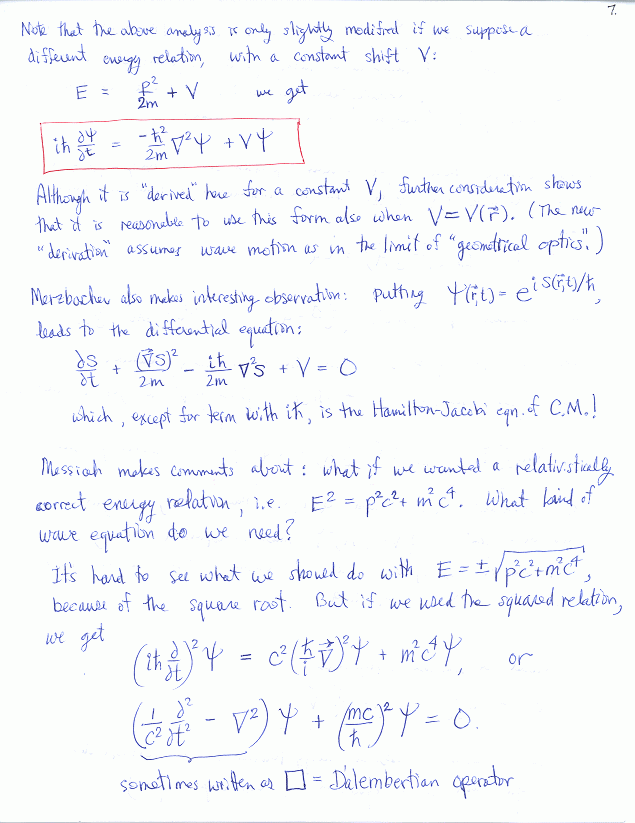 7.
Note that the above analysis is only slightly modified if we suppose a
different energy relation, with a constant shift V:
E = p²/2m + V we get
iħ ∂Ψ/∂t = -ħ²/2m ∇²Ψ + VΨ
Although it is "derived" here for a constant V, further consideration shows
that it is reasonable to use this form also when V=V(r⃗). (The new
"derivation" assumes wave motion as in the limit of "geometrical optics".)
Merzbacher also makes interesting observation: putting Ψ(r⃗,t) = e^{i S(r⃗,t)/ħ},
leads to the differential equation:
∂S/∂t + (∇⃗S)²/2m - iħ/2m ∇²S + V = 0
which, except for term with iħ, is the Hamilton-Jacobi eqn. of C.M.!
Messiah makes comments about: what if we wanted a relativistically
correct energy relation, i.e. E² = p²c² + m²c⁴. What kind of
wave equation do we need?
It's hard to see what we should do with E = ±√(p²c²+m²c⁴),
because of the square root. But if we used the squared relation,
we get
(iħ ∂/∂t)²Ψ = c²(ħ/i ∇⃗)²Ψ + m²c⁴Ψ, or
(1/c² ∂²/∂t² - ∇²)Ψ + (mc/ħ)²Ψ = 0.
sometimes written as □ = D'alembertian operator